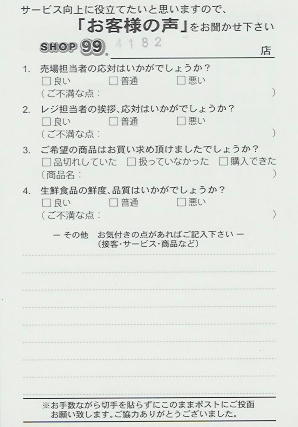 サービス向上に役立てたいと思いますので、
「お客様の声」をお聞かせ下さい
SHOP 99. 4182 店
1. 売場担当者の応対はいかがでしょうか?
□良い □普通 □悪い
(ご不満な点: )
2. レジ担当者の挨拶、応対はいかがでしょうか?
□良い □普通 □悪い
(ご不満な点: )
3. ご希望の商品はお買い求め頂けましたでしょうか?
□品切れしていた □扱っていなかった □購入できた
(商品名: )
4. 生鮮食品の鮮度、品質はいかがでしょうか?
□良い □普通 □悪い
(ご不満な点: )
― その他 お気付きの点があればご記入下さい ―
(接客・サービス・商品など)
※お手数ながら切手を貼らずにこのままポストにご投函
お願い致します。ご協力ありがとうございました。